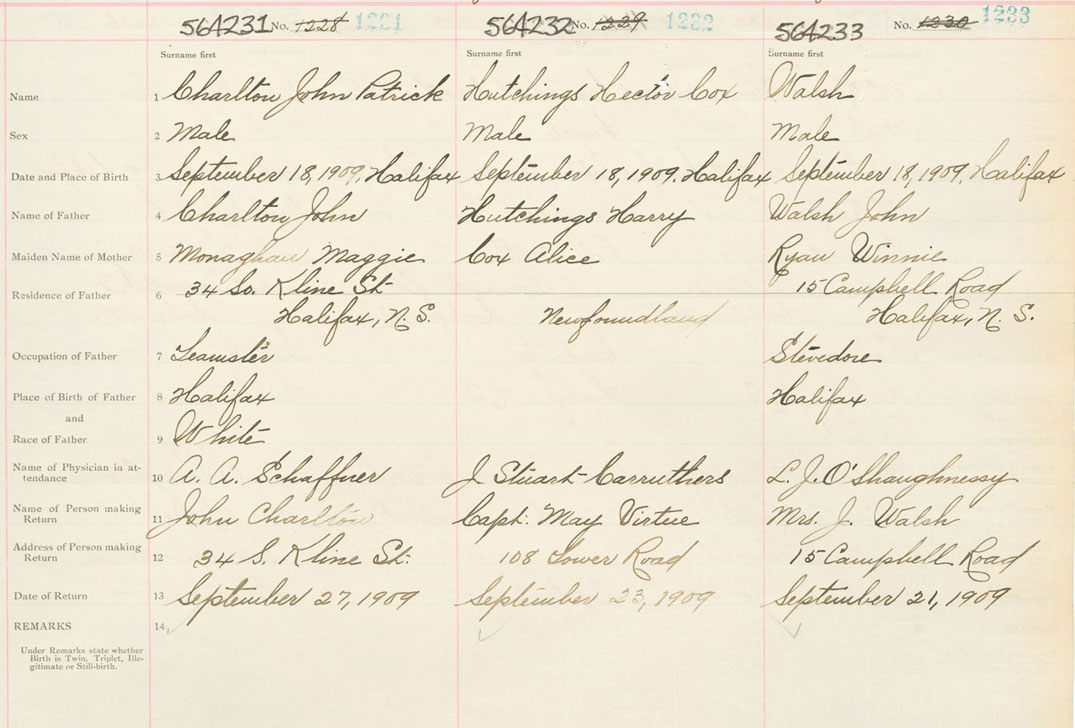 564231 No. 1228 1231 564232 No. 1229 1232 564233 No. 1230 1233
Surname first Surname first Surname first
Name 1 Charlton John Patrick Hutchings Hector Cox Walsh
Sex 2 Male Male Male
Date and Place of Birth 3 September 18, 1909, Halifax September 18, 1909. Halifax September 18, 1909. Halifax
Name of Father 4 Charlton John Hutchings Harry Walsh John
Maiden Name of Mother 5 Monaghan Maggie Cox Alice Ryan Winnie
Residence of Father 6 34 So. Kline St. 15 Campbell Road
Halifax, N.S. Newfoundland Halifax, N.S.
Occupation of Father 7 Teamster Stevedore
Place of Birth of Father 8 Halifax Halifax
and
Race of Father 9 White
Name of Physician in at-
tendance 10 A. A. Schaffner J Stuart-Carruthers L. J. O'Shaughnessy
Name of Person making
Return 11 John Charlton Capt. May Virtue Mrs. J. Walsh
Address of Person making
Return 12 34 S. Kline St. 108 Tower Road 15 Campbell Road
Date of Return 13 September 27, 1909 September 23, 1909 September 21, 1909
REMARKS 14
Under Remarks state whether
Birth is Twin, Triplet, Ille-
gitimate or Still-birth.